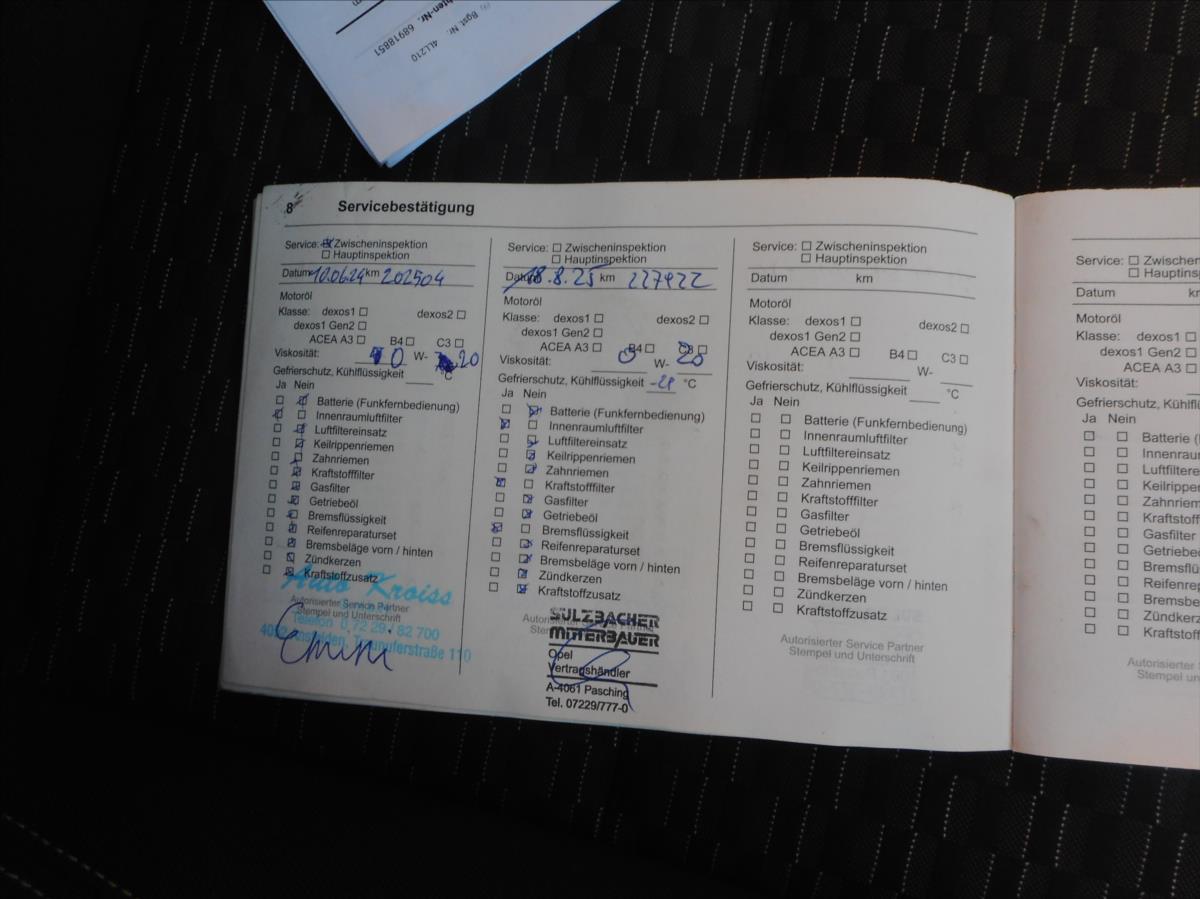 m
hten-Nr. 68918851
(6) Bgst Nr. 4LL210
8 Servicebestätigung
Service: ☒ Zwischeninspektion
☐ Hauptinspektion
Datum 10.06.24 km 202504
Motoröl
Klasse: dexos1 ☐ dexos2 ☐
dexos1 Gen2 ☐
ACEA A3 ☐ B4 ☐ C3 ☐
Viskosität: 0 W- 20
Gefrierschutz, Kühlflüssigkeit °C
Ja Nein
☐ ☒ Batterie (Funkfernbedienung)
☒ ☐ Innenraumluftfilter
☐ ☒ Luftfiltereinsatz
☐ ☒ Keilrippenriemen
☐ ☒ Zahnriemen
☐ ☒ Kraftstofffilter
☐ ☒ Gasfilter
☐ ☒ Getriebeöl
☐ ☒ Bremsflüssigkeit
☐ ☒ Reifenreparaturset
☐ ☒ Bremsbeläge vorn / hinten
☐ ☒ Zündkerzen
☐ ☒ Kraftstoffzusatz
Auto Kroiss
Autorisierter Service Partner
Stempel und Unterschrift
Telefon 0 72 29 / 82 700
4052 Ansfelden, Traunuferstraße 110
Service: ☐ Zwischeninspektion
☐ Hauptinspektion
Datum 18.8.25 km 227922
Motoröl
Klasse: dexos1 ☐ dexos2 ☐
dexos1 Gen2 ☐
ACEA A3 ☐ B4 ☐ C3 ☐
Viskosität: 0 W- 20
Gefrierschutz, Kühlflüssigkeit -28 °C
Ja Nein
☐ ☒ Batterie (Funkfernbedienung)
☒ ☐ Innenraumluftfilter
☐ ☒ Luftfiltereinsatz
☐ ☒ Keilrippenriemen
☐ ☒ Zahnriemen
☒ ☐ Kraftstofffilter
☐ ☒ Gasfilter
☐ ☒ Getriebeöl
☒ ☐ Bremsflüssigkeit
☐ ☒ Reifenreparaturset
☐ ☒ Bremsbeläge vorn / hinten
☐ ☒ Zündkerzen
☐ ☒ Kraftstoffzusatz
SULZBACHER
MITTERBAUER
Opel
Vertragshändler
A-4061 Pasching
Tel. 07229/777-0
Service: ☐ Zwischeninspektion
☐ Hauptinspektion
Datum km
Motoröl
Klasse: dexos1 ☐ dexos2 ☐
dexos1 Gen2 ☐
ACEA A3 ☐ B4 ☐ C3 ☐
Viskosität: W-
Gefrierschutz, Kühlflüssigkeit °C
Ja Nein
☐ ☐ Batterie (Funkfernbedienung)
☐ ☐ Innenraumluftfilter
☐ ☐ Luftfiltereinsatz
☐ ☐ Keilrippenriemen
☐ ☐ Zahnriemen
☐ ☐ Kraftstofffilter
☐ ☐ Gasfilter
☐ ☐ Getriebeöl
☐ ☐ Bremsflüssigkeit
☐ ☐ Reifenreparaturset
☐ ☐ Bremsbeläge vorn / hinten
☐ ☐ Zündkerzen
☐ ☐ Kraftstoffzusatz
Autorisierter Service Partner
Stempel und Unterschrift
Service: ☐ Zwischenins
☐ Hauptinspe
Datum km
Motoröl
Klasse: dexos1 ☐
dexos1 Gen2 ☐
ACEA A3 ☐
Viskosität:
Gefrierschutz, Kühlflüss
Ja Nein
☐ ☐ Batterie (
☐ ☐ Innenrau
☐ ☐ Luftfilte
☐ ☐ Keilripp
☐ ☐ Zahnrie
☐ ☐ Kraftsto
☐ ☐ Gasfilter
☐ ☐ Getriebe
☐ ☐ Bremsflü
☐ ☐ Reifenre
☐ ☐ Bremsbe
☐ ☐ Zündker
☐ ☐ Kraftstof
Autorisierter
Stempel un